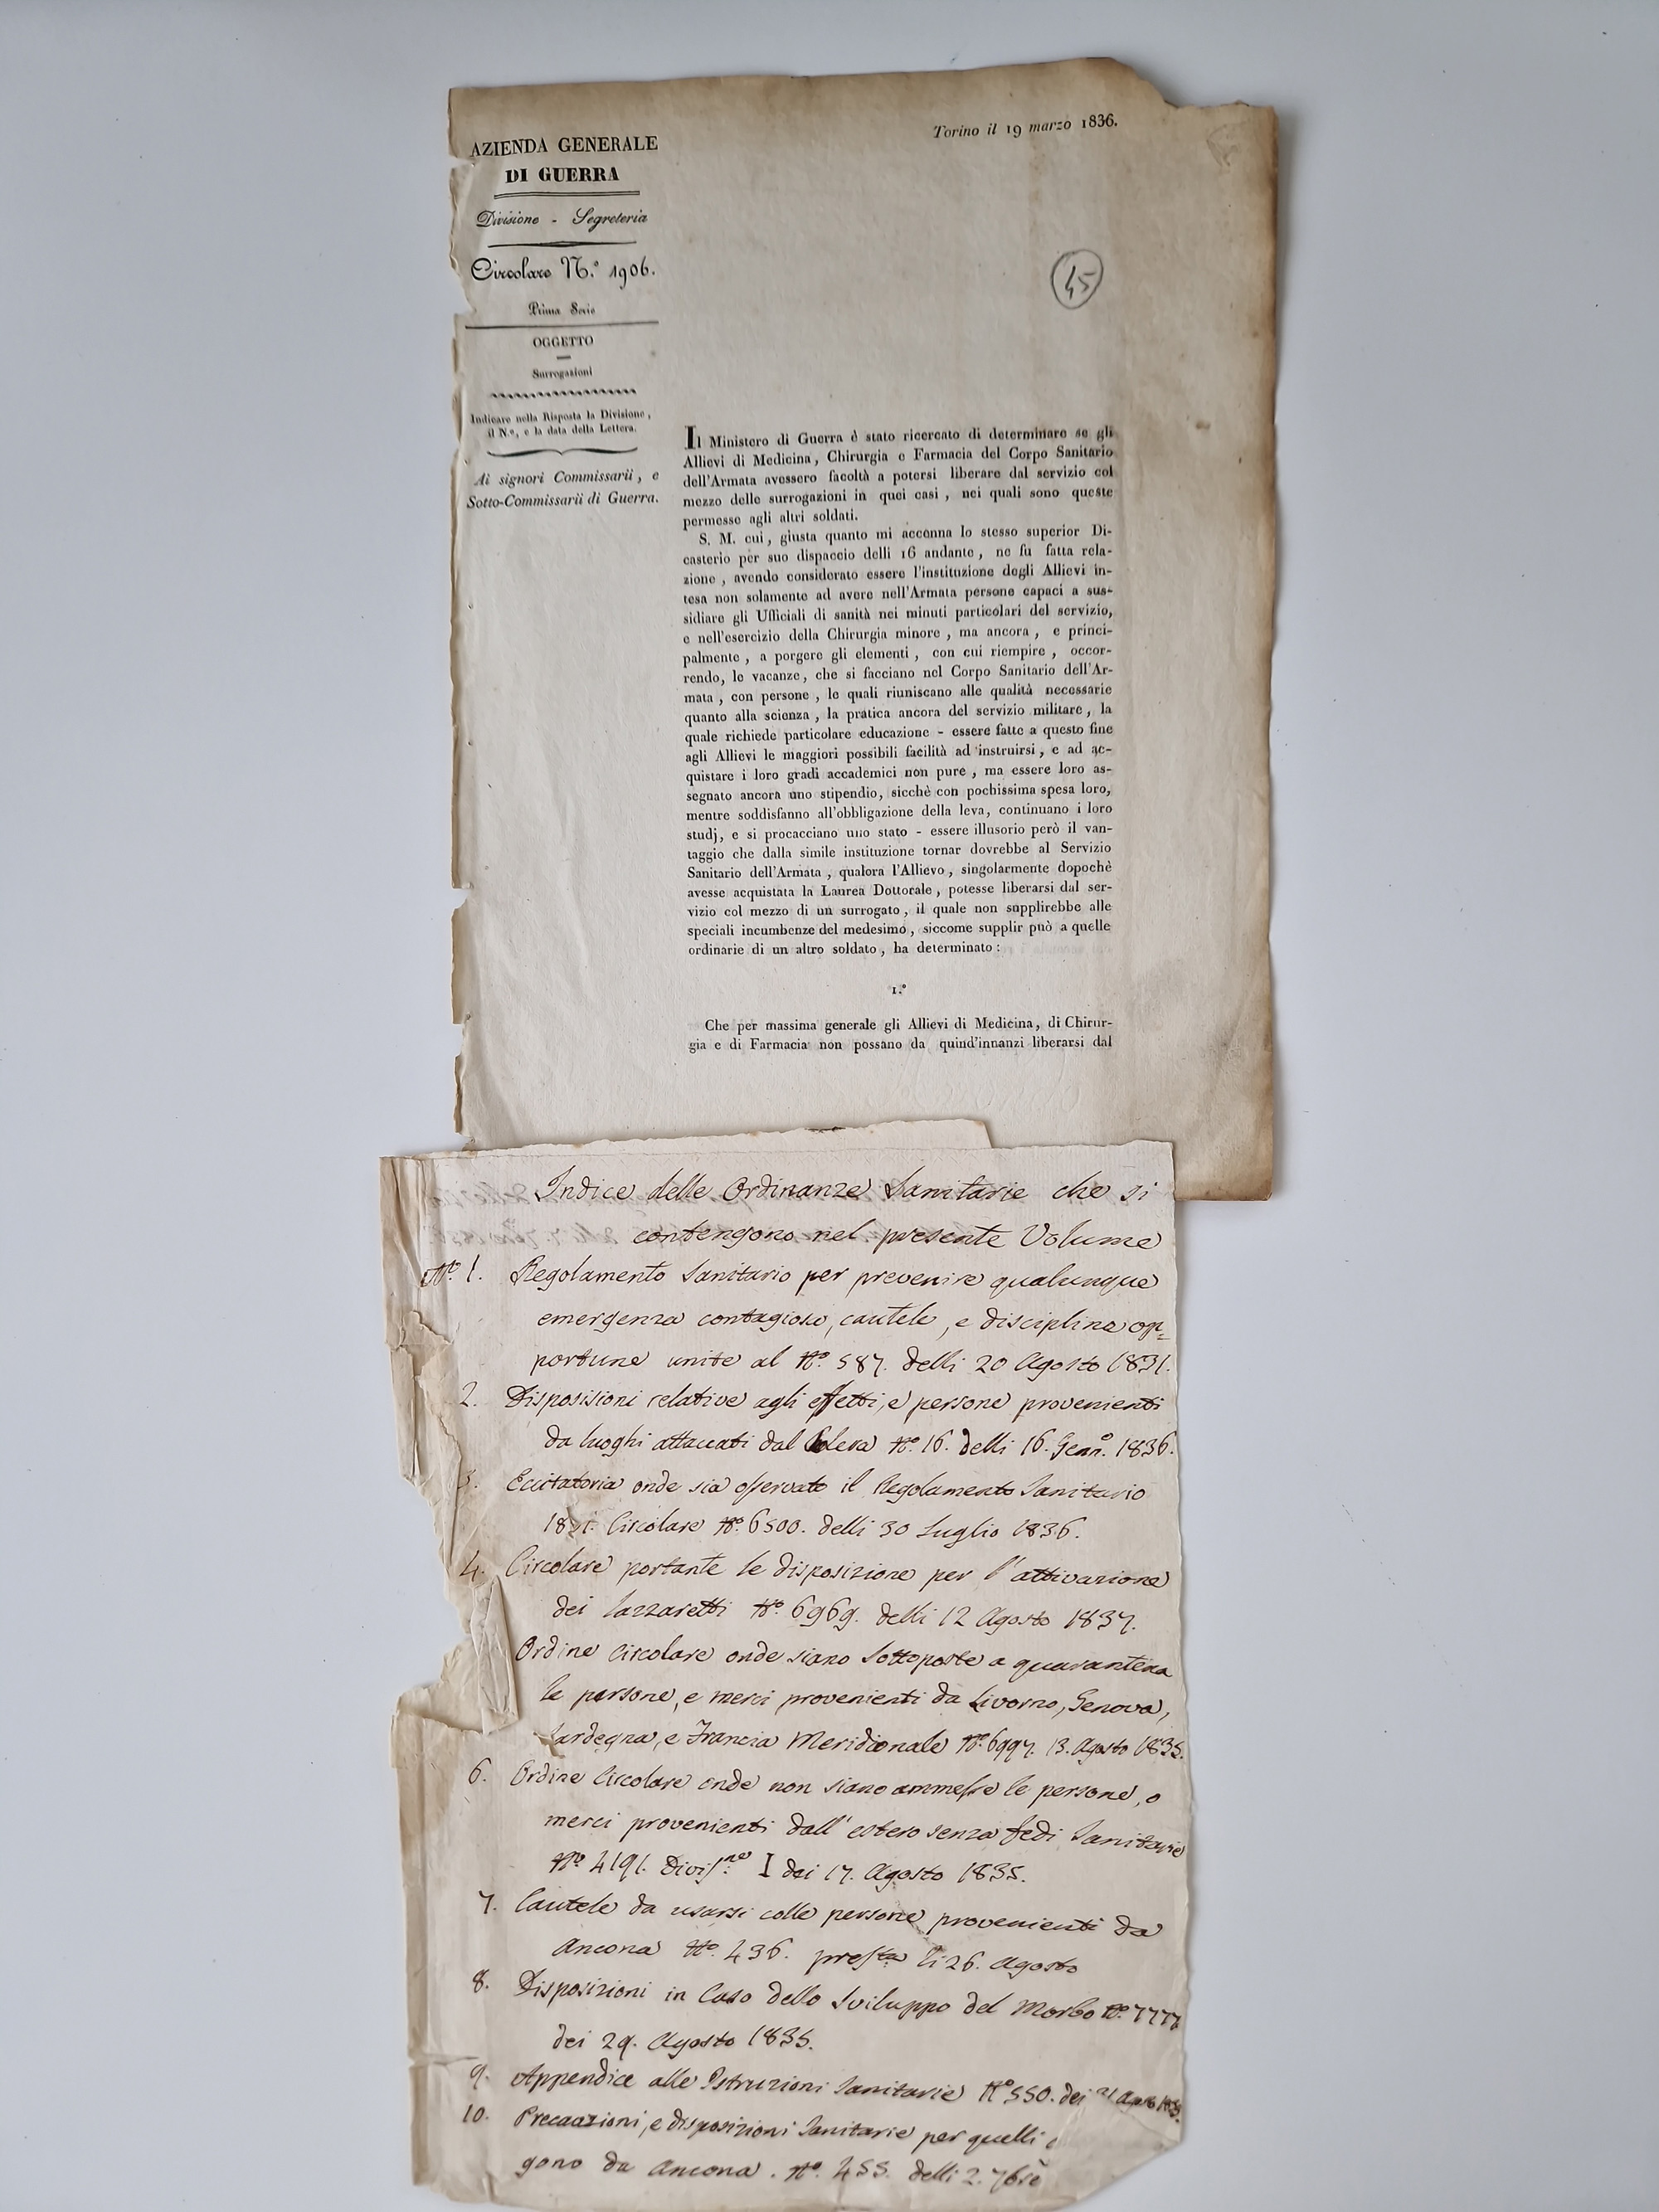 Torino il 19 marzo 1836.
AZIENDA GENERALE
DI GUERRA
Divisione - Segreteria
Circolare N.° 1906.
Prima Serie
OGGETTO
Surrogazioni
Indicare nella Risposta la Divisione,
il N.°, e la data della Lettera.
Ai signori Commissarii, e
Sotto-Commissarii di Guerra.
45
Il Ministero di Guerra è stato ricercato di determinare se gli
Allievi di Medicina, Chirurgia e Farmacia del Corpo Sanitario
dell'Armata avessero facoltà a potersi liberare dal servizio col
mezzo delle surrogazioni in quei casi, nei quali sono queste
permesse agli altri soldati.
S. M. cui, giusta quanto mi accenna lo stesso superior Di-
casterio per suo dispaccio delli 16 andante, ne fu fatta rela-
zione, avendo considerato essere l'instituzione degli Allievi in-
tesa non solamente ad avere nell'Armata persone capaci a sus-
sidiare gli Ufficiali di sanità nei minuti particolari del servizio,
e nell'esercizio della Chirurgia minore, ma ancora, e princi-
palmente, a porgere gli elementi, con cui riempire, occor-
rendo, le vacanze, che si facciano nel Corpo Sanitario dell'Ar-
mata, con persone, le quali riuniscano alle qualità necessarie
quanto alla scienza, la pratica ancora del servizio militare, la
quale richiede particolare educazione - essere fatte a questo fine
agli Allievi le maggiori possibili facilità ad instruirsi, e ad ac-
quistare i loro gradi accademici non pure, ma essere loro as-
segnato ancora uno stipendio, sicchè con pochissima spesa loro,
mentre soddisfanno all'obbligazione della leva, continuano i loro
studj, e si procacciano uno stato - essere illusorio però il van-
taggio che dalla simile instituzione tornar dovrebbe al Servizio
Sanitario dell'Armata, qualora l'Allievo, singolarmente dopochè
avesse acquistata la Laurea Dottorale, potesse liberarsi dal ser-
vizio col mezzo di un surrogato, il quale non supplirebbe alle
speciali incumbenze del medesimo, siccome supplir può a quelle
ordinarie di un altro soldato, ha determinato:
1.°
Che per massima generale gli Allievi di Medicina, di Chirur-
gia e di Farmacia non possano da quind'innanzi liberarsi dal
Indice delle Ordinanze Sanitarie che si
contengono nel presente Volume
N.° 1. Regolamento Sanitario per prevenire qualunque
emergenza contagiosa, cautele, e disciplina op=
portune unite al N.° 587. delli 20 Agosto 1831.
2. Disposisioni relative agli effetti, e persone provenienti
da luoghi attaccati dal Colera N.° 16. delli 16. Genn.° 1836.
3. Eccitatoria onde sia osservato il Regolamento Sanitario
1831. Circolare N.° 6500. delli 30 Luglio 1836.
4. Circolare portante le disposizione per l'attivazione
dei Lazzaretti N.° 6969. delli 12 Agosto 1837.
Ordine Circolare onde siano Sottoposte a quarantena
le persone, e merci provenienti da Livorno, Genova,
Sardegna, e Francia Meridionale N.° 6997. 13. Agosto 1835.
6. Ordine Circolare onde non siano ammesse le persone, o
merci provenienti dall'estero senza fedi Sanitarie
N.° 4191. Divis.ne I dei 17. Agosto 1835.
7. Cautele da usarsi colle persone provenienti da
Ancona N.° 436. li 26. Agosto
8. Disposizioni in Caso dello Sviluppo del Morbo N.° 7777
dei 29. Agosto 1835.
9. Appendice alle Istruzioni Sanitarie N.° 550. dei 21 Agosto
10. Precauzioni, e disposizioni Sanitarie per quelli
gono da Ancona. N.° 455. delli 2. 7bre